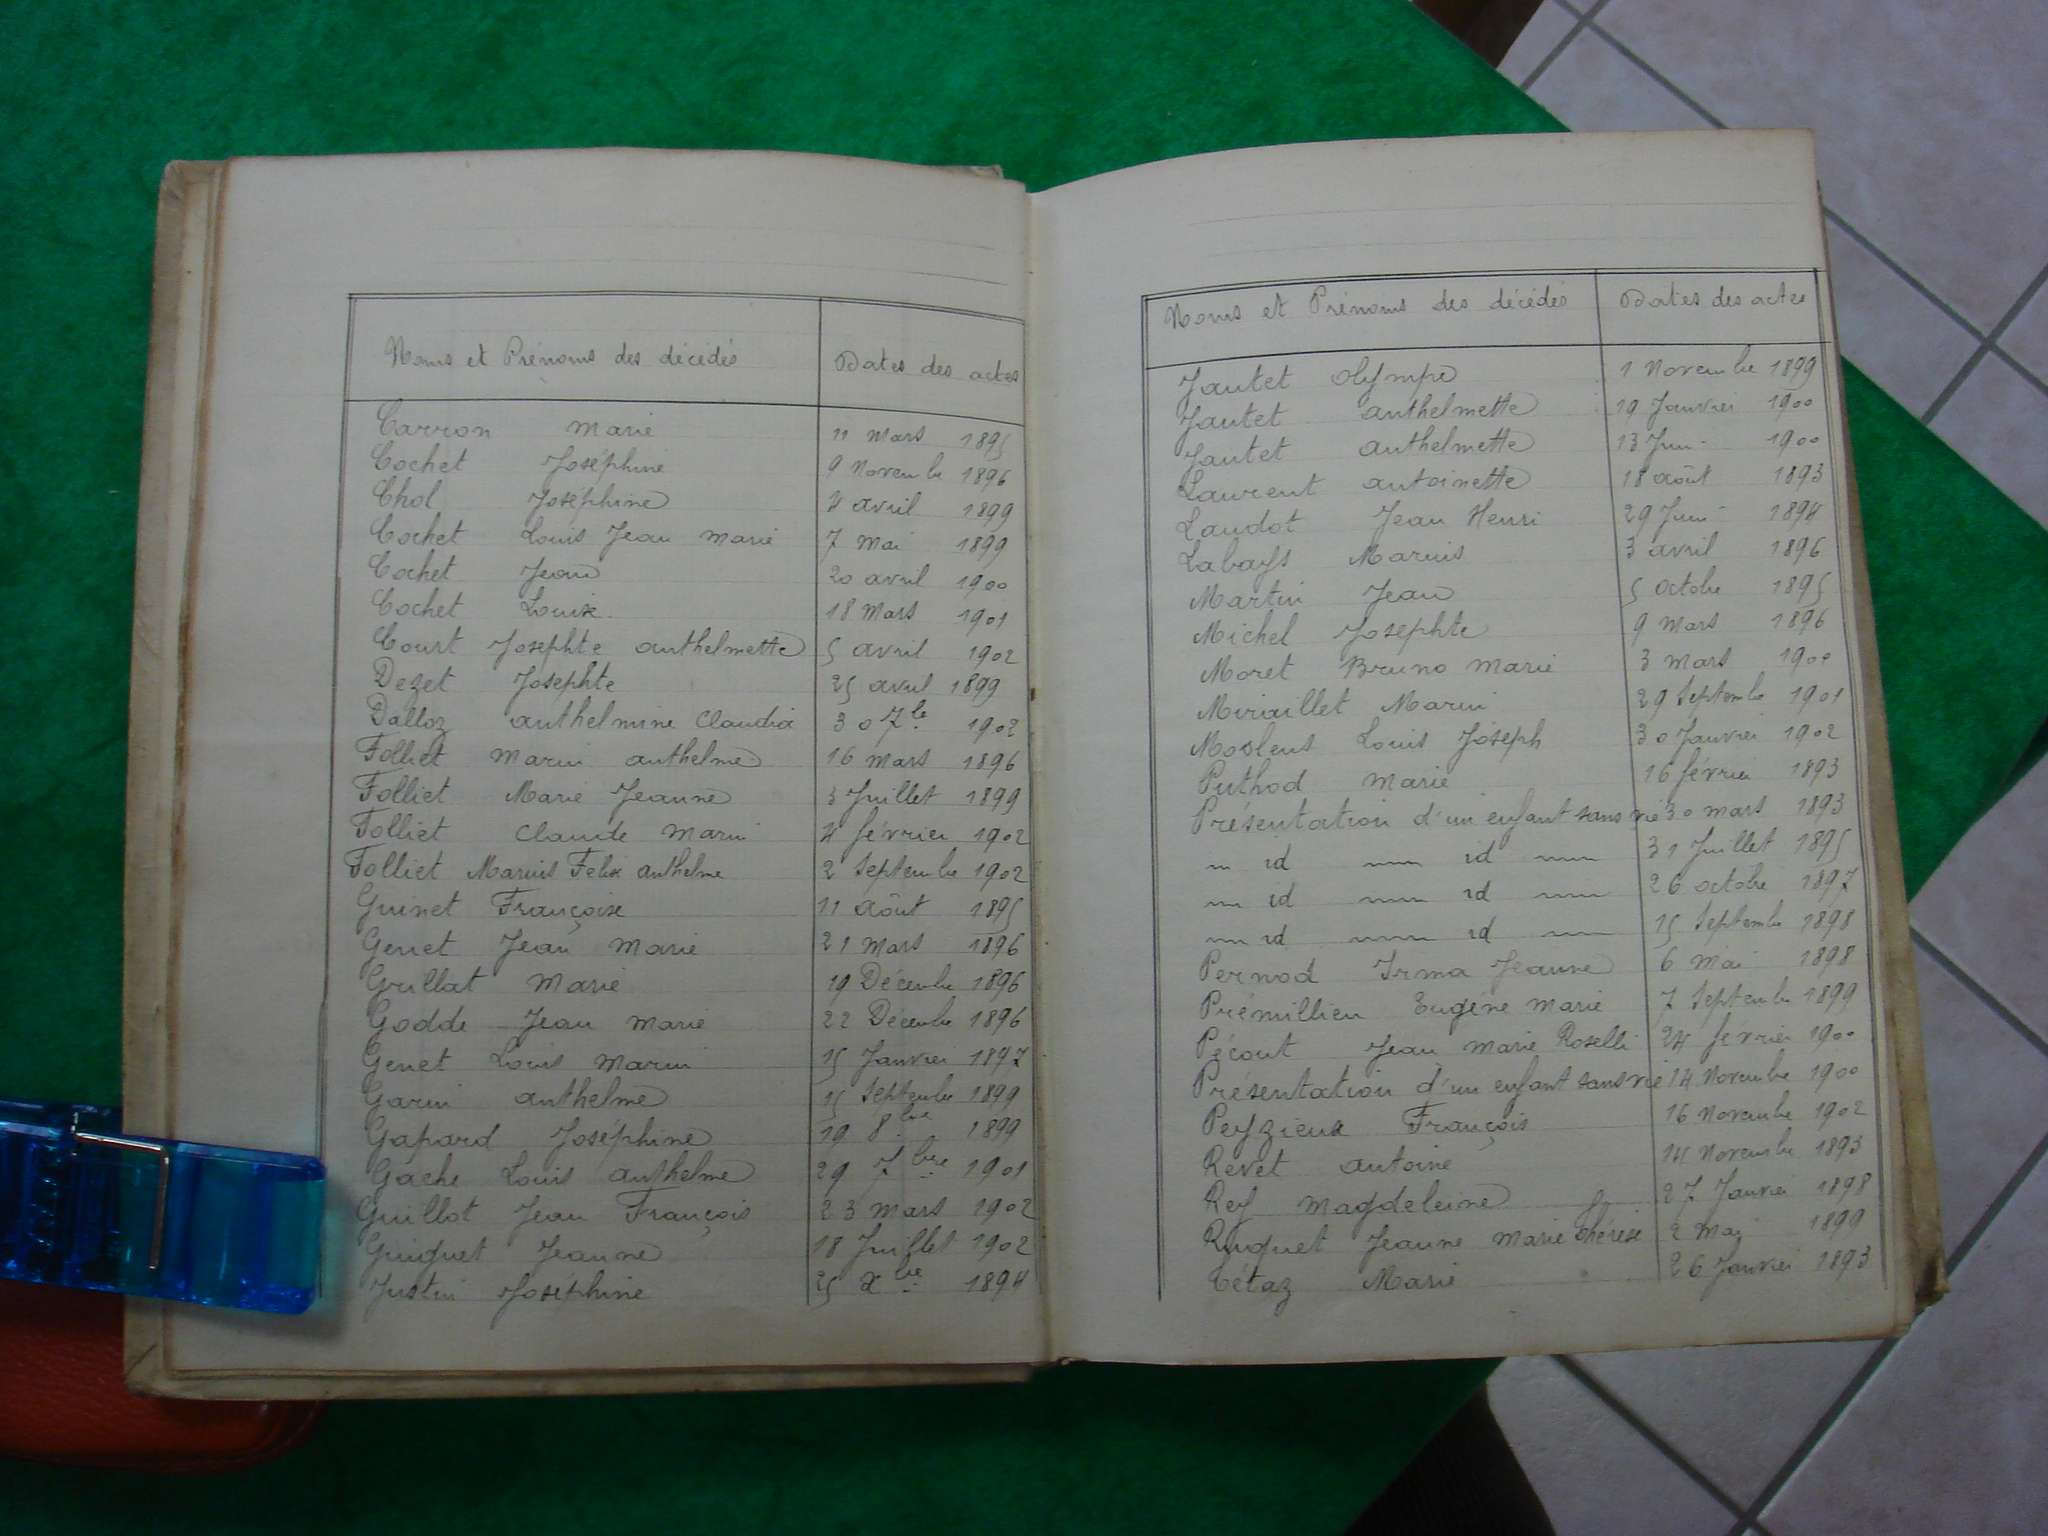 Noms et Prénoms des décédés Dates des actes
Carron Marie 11 Mars 1895
Cochet Joséphine 9 Novembre 1896
Chol Joséphine 4 avril 1899
Cochet Louis Jean Marie 7 Mai 1899
Cochet Jean 20 avril 1900
Cochet Louise 18 Mars 1901
Court Josephte anthelmette 5 avril 1902
Dezet Josephte 25 avril 1899
Dalloz anthelmine Claudia 30 7bre 1902
Folliet Marin anthelme 16 mars 1896
Folliet Marie Jeanne 3 Juillet 1899
Folliet Claude Marin 4 février 1902
Folliet Marius Felix anthelme 2 Septembre 1902
Guinet Françoise 11 août 1895
Genet Jean Marie 21 Mars 1896
Grillat Marie 19 Décembre 1896
Godde Jean Marie 22 Décembre 1896
Genet Louis Marin 15 Janvier 1897
Garin anthelme 15 Septembre 1899
Gapard Joséphine 19 8bre 1899
Gache Louis anthelme 29 7bre 1901
Guillot Jean François 23 Mars 1902
Guiguet Jeanne 18 Juillet 1902
Justin Joséphine 25 Xbre 1894
Noms et Prénoms des décédés Dates des actes
Jantet Olympe 1 Novembre 1899
Jantet anthelmette 19 Janvier 1900
Jantet anthelmette 13 Juin 1900
Laurent antoinette 18 août 1893
Laudot Jean Henri 29 Juin 1894
Labays Marius 3 avril 1896
Martin Jean 5 octobre 1895
Michel Josephte 9 Mars 1896
Moret Bruno Marie 3 mars 1900
Miraillet Marin 29 Septembre 1901
Louis Joseph 30 Janvier 1902
Puthod Marie 16 février 1893
Présentation d'un enfant sans vie 30 mars 1893
id id 31 Juillet 1895
id id 26 octobre 1897
id id 15 Septembre 1898
Pernod Irma Jeanne 6 Mai 1898
Prémillieu Eugène Marie 7 Septembre 1899
Pécout Jean Marie Roselli 24 fevrier 1900
Présentation d'un enfant sans vie 14 Novembre 1900
Peyzieux François 16 Novembre 1902
Revet antoine 14 Novembre 1893
Rey Magdeleine 27 Janvier 1898
Ruguet Jeanne Marie thérèse 2 Mai 1899
Tétaz Marie 26 Janvier 1893